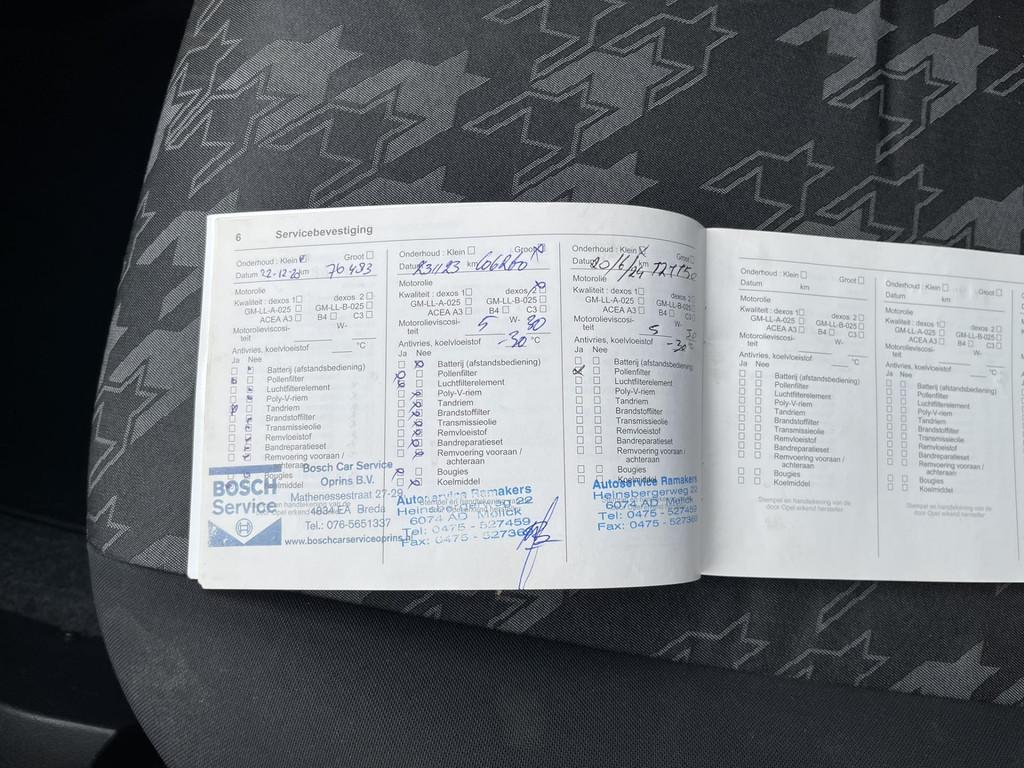 6 Servicebevestiging
Onderhoud : Klein Groot
Datum 22-12-20 km 76483
Motorolie
Kwaliteit : dexos 1 dexos 2
GM-LL-A-025 GM-LL-B-025
ACEA A3 B4 C3
Motorolieviscosi- W-
teit
Antivries, koelvloeistof °C
Ja Nee
Batterij (afstandsbediening)
Pollenfilter
Luchtfilterelement
Poly-V-riem
Tandriem
Brandstoffilter
Transmissieolie
Remvloeistof
Bandreparatieset
Remvoering vooraan /
achteraan
Bougies
Koelmiddel
BOSCH
Service
Bosch Car Service
Oprins B.V.
Mathenessestraat 27-29
4834 EA Breda
Tel.: 076-5651337
www.boschcarserviceoprins.nl
Onderhoud : Klein Groot
Datum km
Motorolie
Kwaliteit : dexos 1 dexos 2
GM-LL-A-025 GM-LL-B-025
ACEA A3 B4 C3
Motorolieviscosi- 5 W- 30
teit
Antivries, koelvloeistof -30 °C
Ja Nee
Batterij (afstandsbediening)
Pollenfilter
Luchtfilterelement
Poly-V-riem
Tandriem
Brandstoffilter
Transmissieolie
Remvloeistof
Bandreparatieset
Remvoering vooraan /
achteraan
Bougies
Koelmiddel
Autoservice Ramakers
Heinsbergerweg 22
6074 AD Melick
Tel: 0475 - 527459
Fax: 0475 - 527369
Onderhoud : Klein Groot
Datum 20/6/24 km
Motorolie
Kwaliteit : dexos 1 dexos 2
GM-LL-A-025 GM-LL-B-025
ACEA A3 B4 C3
Motorolieviscosi- 5 W- 30
teit
Antivries, koelvloeistof -30 °C
Ja Nee
Batterij (afstandsbediening)
Pollenfilter
Luchtfilterelement
Poly-V-riem
Tandriem
Brandstoffilter
Transmissieolie
Remvloeistof
Bandreparatieset
Remvoering vooraan /
achteraan
Bougies
Koelmiddel
Autoservice Ramakers
Heinsbergerweg 22
6074 AD Melick
Tel: 0475 - 527459
Fax: 0475 - 527369
Onderhoud : Klein Groot
Datum km
Motorolie
Kwaliteit : dexos 1 dexos 2
GM-LL-A-025 GM-LL-B-025
ACEA A3 B4 C3
Motorolieviscosi- W-
teit
Antivries, koelvloeistof °C
Ja Nee
Batterij (afstandsbediening)
Pollenfilter
Luchtfilterelement
Poly-V-riem
Tandriem
Brandstoffilter
Transmissieolie
Remvloeistof
Bandreparatieset
Remvoering vooraan /
achteraan
Bougies
Koelmiddel
Stempel en handtekening van de
door Opel erkend hersteller
Onderhoud : Klein Groot
Datum km
Motorolie
Kwaliteit : dexos 1 dexos 2
GM-LL-A-025 GM-LL-B-025
ACEA A3 B4 C3
Motorolieviscosi- W-
teit
Antivries, koelvloeistof °C
Ja Nee
Batterij (afstandsbediening)
Pollenfilter
Luchtfilterelement
Poly-V-riem
Tandriem
Brandstoffilter
Transmissieolie
Remvloeistof
Bandreparatieset
Remvoering vooraan /
achteraan
Bougies
Koelmiddel
Stempel en handtekening van de
door Opel erkend hersteller